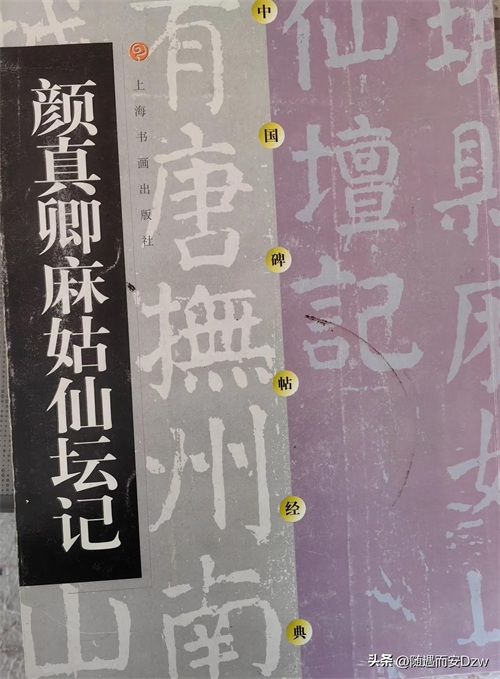 颜真卿麻姑仙坛记
上海书画出版社
中国碑帖经典
有唐撫州南
城縣麻姑山
仙壇記
头条 @随遇而安Dzw